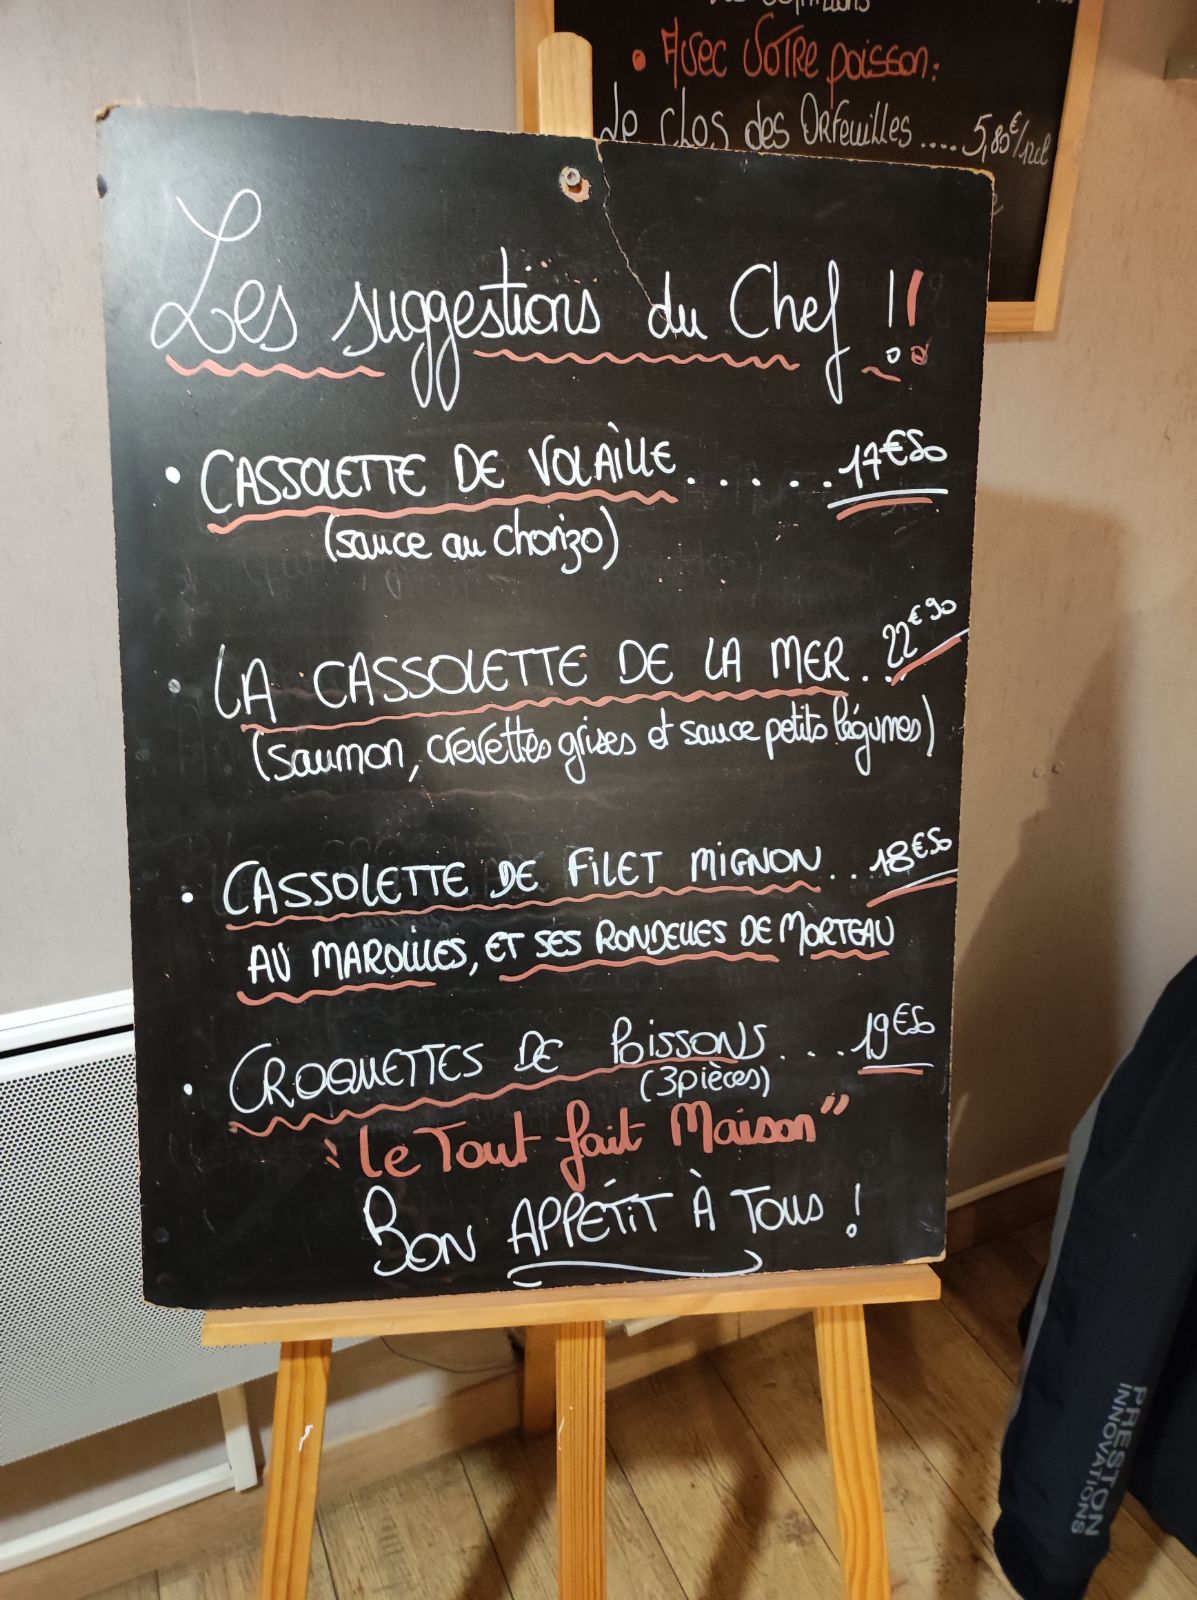 • Avec Votre poisson:
Le Clos des Orfeuilles .... 5,80€/12cl
Les suggestions du Chef !!
• CASSOLETTE DE VOLAILLE ...... 17€50
(sauce au chorizo)
• LA CASSOLETTE DE LA MER .. 22€90
(saumon, crevettes grises et sauce petits légumes)
• CASSOLETTE DE FILET MIGNON ... 18€50
AU MAROILLES, ET SES RONDELLES DE MORTEAU
• CROQUETTES DE POISSONS .... 19€50
(3 pièces)
"Le Tout fait Maison"
BON APPÉTIT À TOUS !
PRESTON
INNOVATIONS